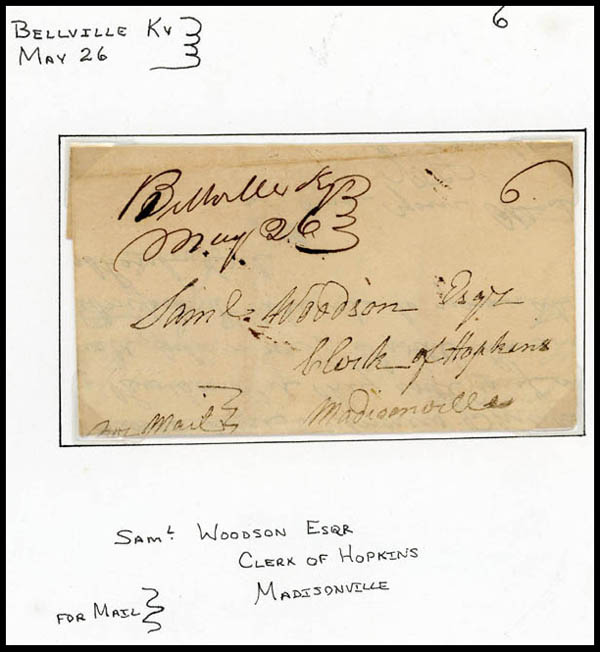 BELLVILLE KY 6
MAY 26
Bellville Ky 6
May 26
Saml. Woodson Esqr
Clerk of Hopkins
Madisonville
for Mail
SAML. WOODSON ESQR
CLERK OF HOPKINS
MADISONVILLE
FOR MAIL